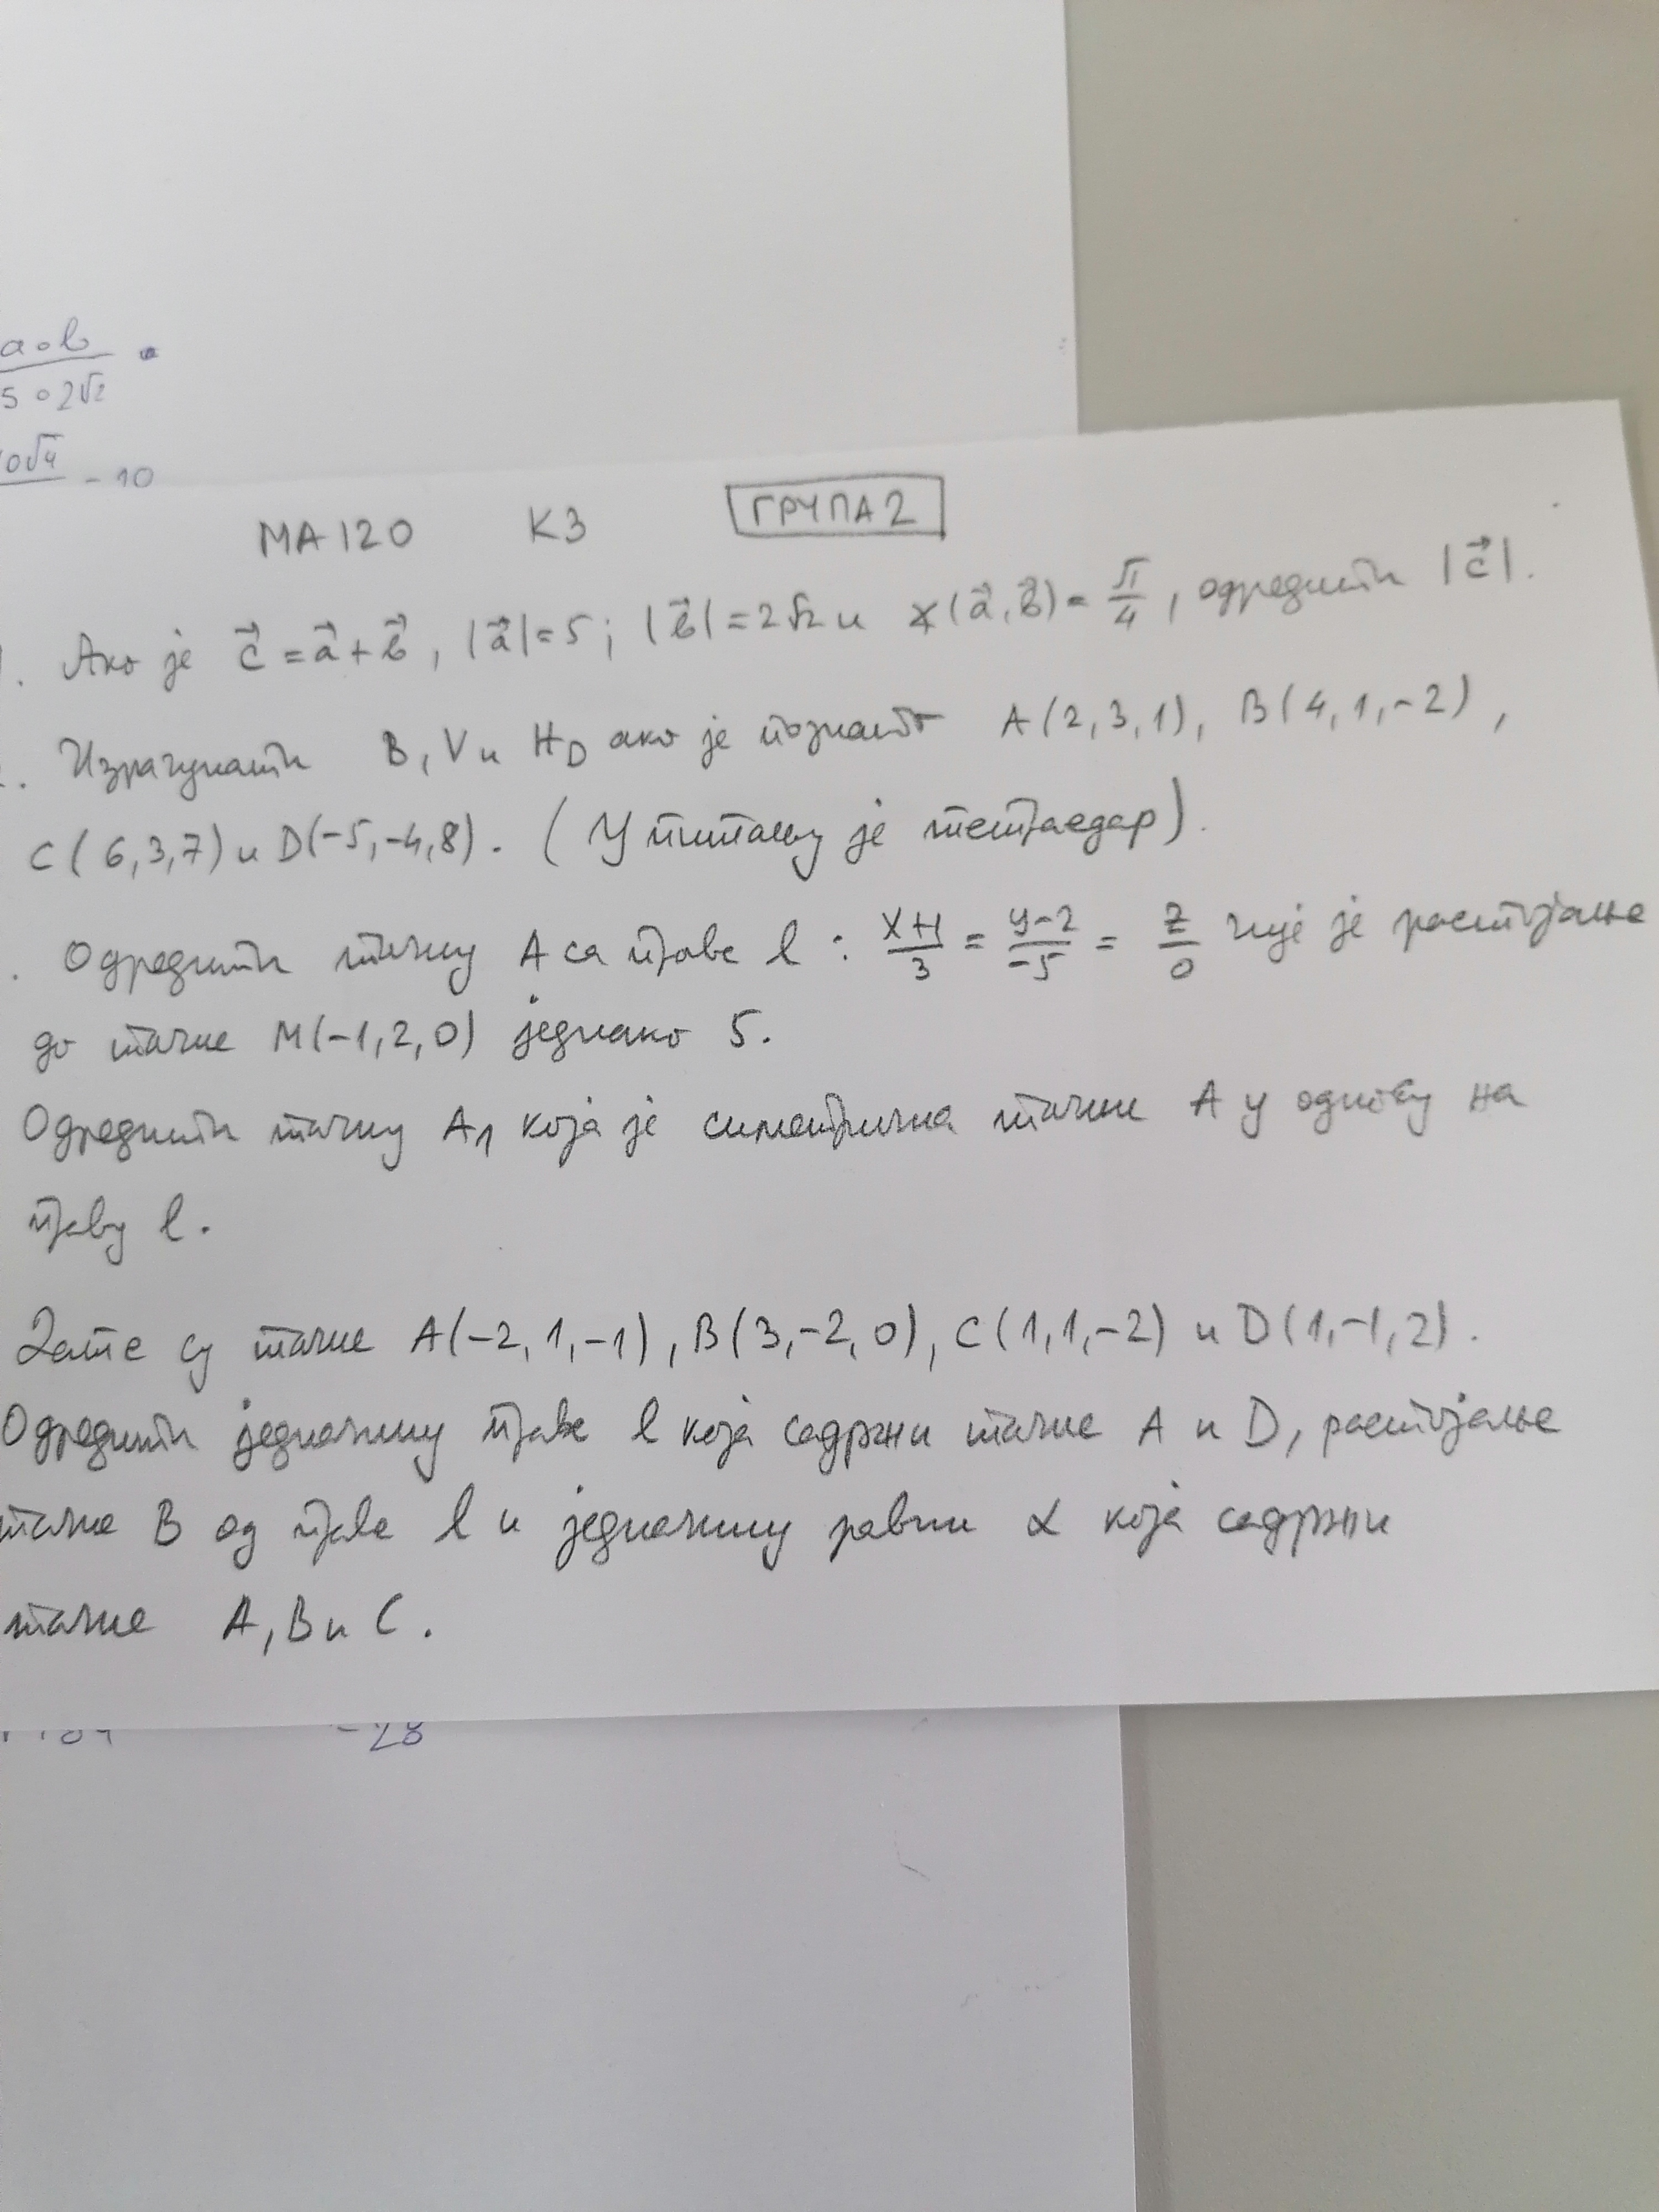 a∘b
5∘2√2
0√4
- 10
МА 120 К3 ГРУПА 2
. Ако је c⃗ = a⃗ + b⃗, |a⃗| = 5; |b⃗| = 2√2 и ∡(a⃗, b⃗) = π/4, одредити |c⃗|.
. Израчунати B, V и H_D ако је познато A(2,3,1), B(4,1,-2),
C(6,3,7) и D(-5,-4,8). (У питању је тетраедар).
. Одредити тачку A са праве l : (x+1)/3 = (y-2)/-5 = z/0 чије је растојање
до тачке M(-1,2,0) једнако 5.
Одредити тачку A₁ која је симетрична тачки A у односу на
праву l.
Дате су тачке A(-2,1,-1), B(3,-2,0), C(1,1,-2) и D(1,-1,2).
Одредити једначину праве l која садржи тачке A и D, растојање
тачке B од праве l и једначину равни α која садржи
тачке A, B и C.
-28